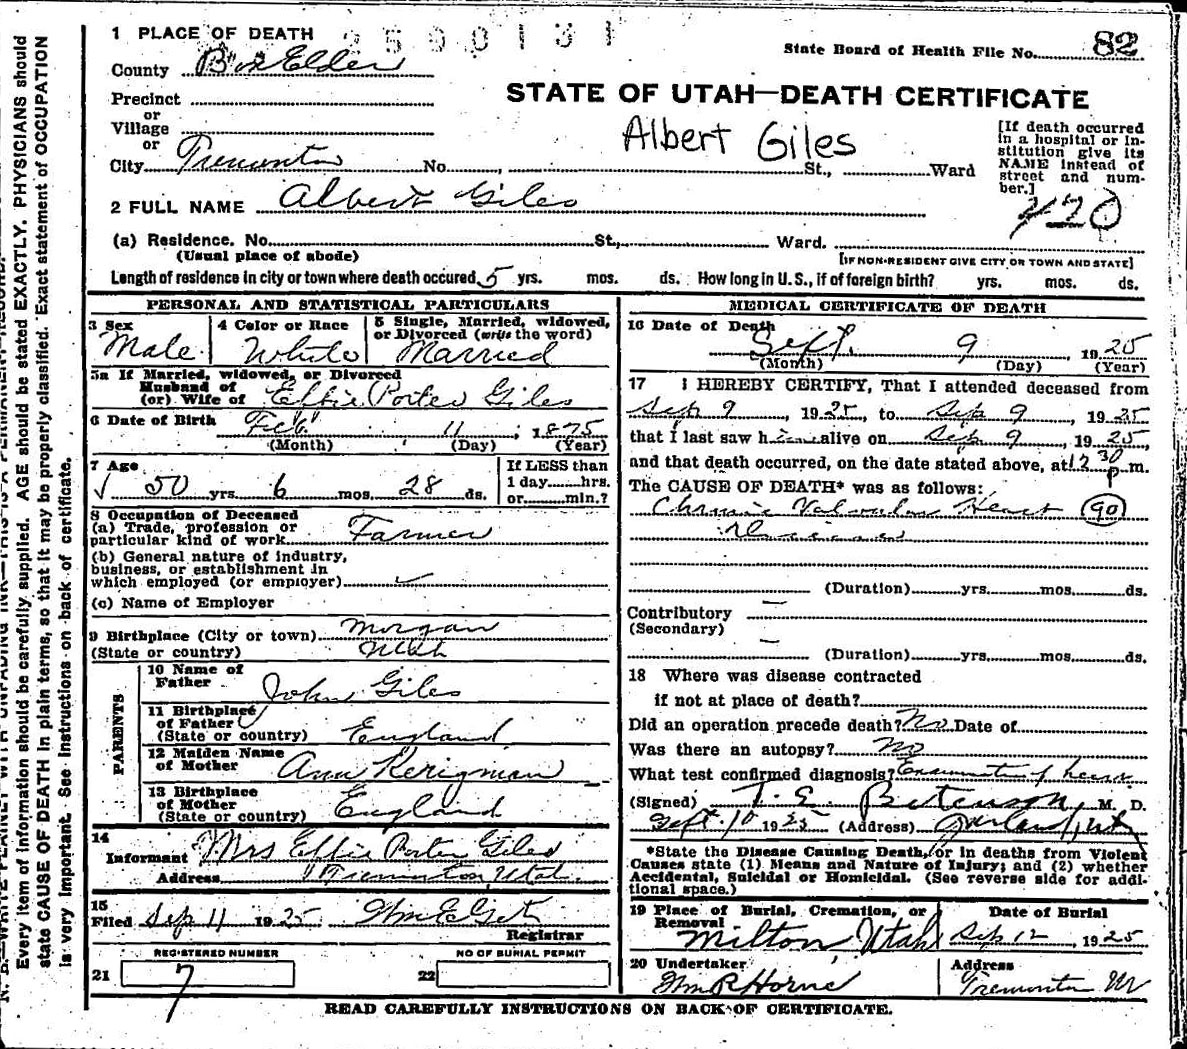 1 PLACE OF DEATH 2590131
State Board of Health File No. 82
County Box Elder
STATE OF UTAH—DEATH CERTIFICATE
Precinct
or
Village
or
Albert Giles
[If death occurred in a hospital or institution give its NAME instead of street and number.]
City Tremonton No. St., Ward
420
2 FULL NAME Albert Giles
(a) Residence. No. St., Ward.
(Usual place of abode) [IF NON-RESIDENT GIVE CITY OR TOWN AND STATE]
Length of residence in city or town where death occured 5 yrs. mos. ds. How long in U.S., if of foreign birth? yrs. mos. ds.
PERSONAL AND STATISTICAL PARTICULARS
3 Sex Male
4 Color or Race White
5 Single, Married, widowed, or Divorced (write the word) Married
5a If Married, widowed, or Divorced
Husband of
(or) Wife of Effie Porter Giles
6 Date of Birth Feb 11, 1875
(Month) (Day) (Year)
7 Age 50 yrs 6 mos 28 ds.
If LESS than 1 day hrs. or min.?
8 Occupation of Deceased
(a) Trade, profession or
particular kind of work Farmer
(b) General nature of industry,
business, or establishment in
which employed (or employer)
(c) Name of Employer
9 Birthplace (City or town) Morgan
(State or country) Utah
PARENTS
10 Name of Father John Giles
11 Birthplace of Father
(State or country) England
12 Maiden Name
of Mother Ann Kerigman
13 Birthplace
of Mother
(State or country) England
14
Informant Mrs Effie Porter Giles
Address Tremonton, Utah
15
Filed Sep 11 1925
Registrar
REGISTERED NUMBER
NO OF BURIAL PERMIT
21 7
22
MEDICAL CERTIFICATE OF DEATH
16 Date of Death
Sept. 9 1925
(Month) (Day) (Year)
17 I HEREBY CERTIFY, That I attended deceased from
Sep 9, 1925, to Sep 9, 1925
that I last saw him alive on Sep 9, 1925
and that death occurred, on the date stated above, at 12 30 p m.
The CAUSE OF DEATH* was as follows:
Chronic Valvular Heart (90)
Disease
(Duration) yrs. mos. ds.
Contributory
(Secondary)
(Duration) yrs. mos. ds.
18 Where was disease contracted
if not at place of death?
Did an operation precede death? No Date of
Was there an autopsy? No
What test confirmed diagnosis? Examination of heart
(Signed) T. E. Betenson, M. D.
Sept. 10 1925 (Address) Garland, Utah
*State the Disease Causing Death, or in deaths from Violent
Causes state (1) Means and Nature of Injury; and (2) whether
Accidental, Suicidal or Homicidal. (See reverse side for addi-
tional space.)
19 Place of Burial, Cremation, or Removal
Milton, Utah
Date of Burial
Sep 12, 1925
20 Undertaker
Wm R Horne
Address
Tremonton
READ CAREFULLY INSTRUCTIONS ON BACK OF CERTIFICATE.
Every item of information should be carefully supplied. AGE should be stated EXACTLY. PHYSICIANS should
state CAUSE OF DEATH in plain terms, so that it may be properly classified. Exact statement of OCCUPATION
is very important. See instructions on back of certificate.